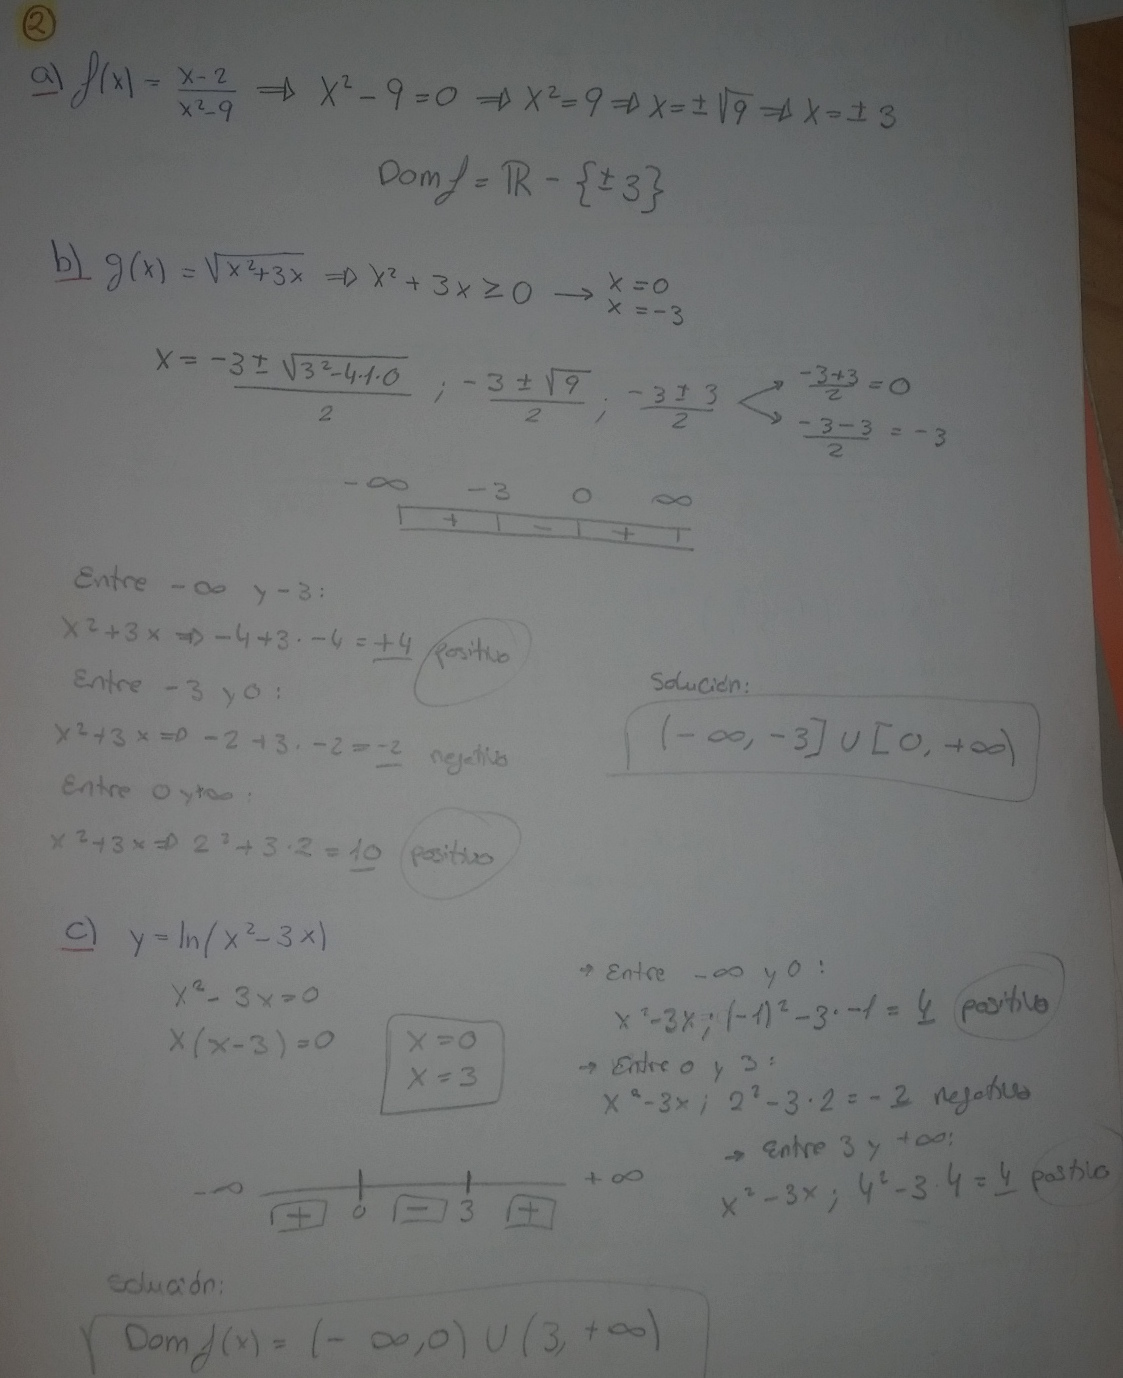 2
a) f(x) = x-2/x²-9 ⇒ x² - 9 = 0 ⇒ x² = 9 ⇒ x = ±√9 ⇒ x = ± 3
Dom f = ℝ - {± 3}
b) g(x) = √x²+3x ⇒ x² + 3x ≥ 0 → x = 0
x = -3
x = -3 ± √3²-4·1·0 / 2 ; -3 ± √9 / 2 ; -3 ± 3 / 2
-3+3 / 2 = 0
-3-3 / 2 = -3
-∞ -3 0 ∞
+ - +
Entre -∞ y -3:
x²+3x ⇒ -4+3·-4 = +4 positivo
Entre -3 y 0:
x²+3x ⇒ -2+3·-2 = -2 negativo
Entre 0 y +∞:
x²+3x ⇒ 2²+3·2 = 10 positivo
Solución:
(-∞, -3] ∪ [0, +∞)
c) y = ln(x²-3x)
x² - 3x = 0
x(x-3) = 0
x = 0
x = 3
→ Entre -∞ y 0:
x²-3x; (-1)²-3·-1 = 4 positivo
→ Entre 0 y 3:
x²-3x; 2²-3·2 = -2 negativo
→ Entre 3 y +∞:
x²-3x; 4²-3·4 = 4 positivo
-∞ +∞
+ 0 - 3 +
Solución:
Dom f(x) = (-∞,0) ∪ (3, +∞)